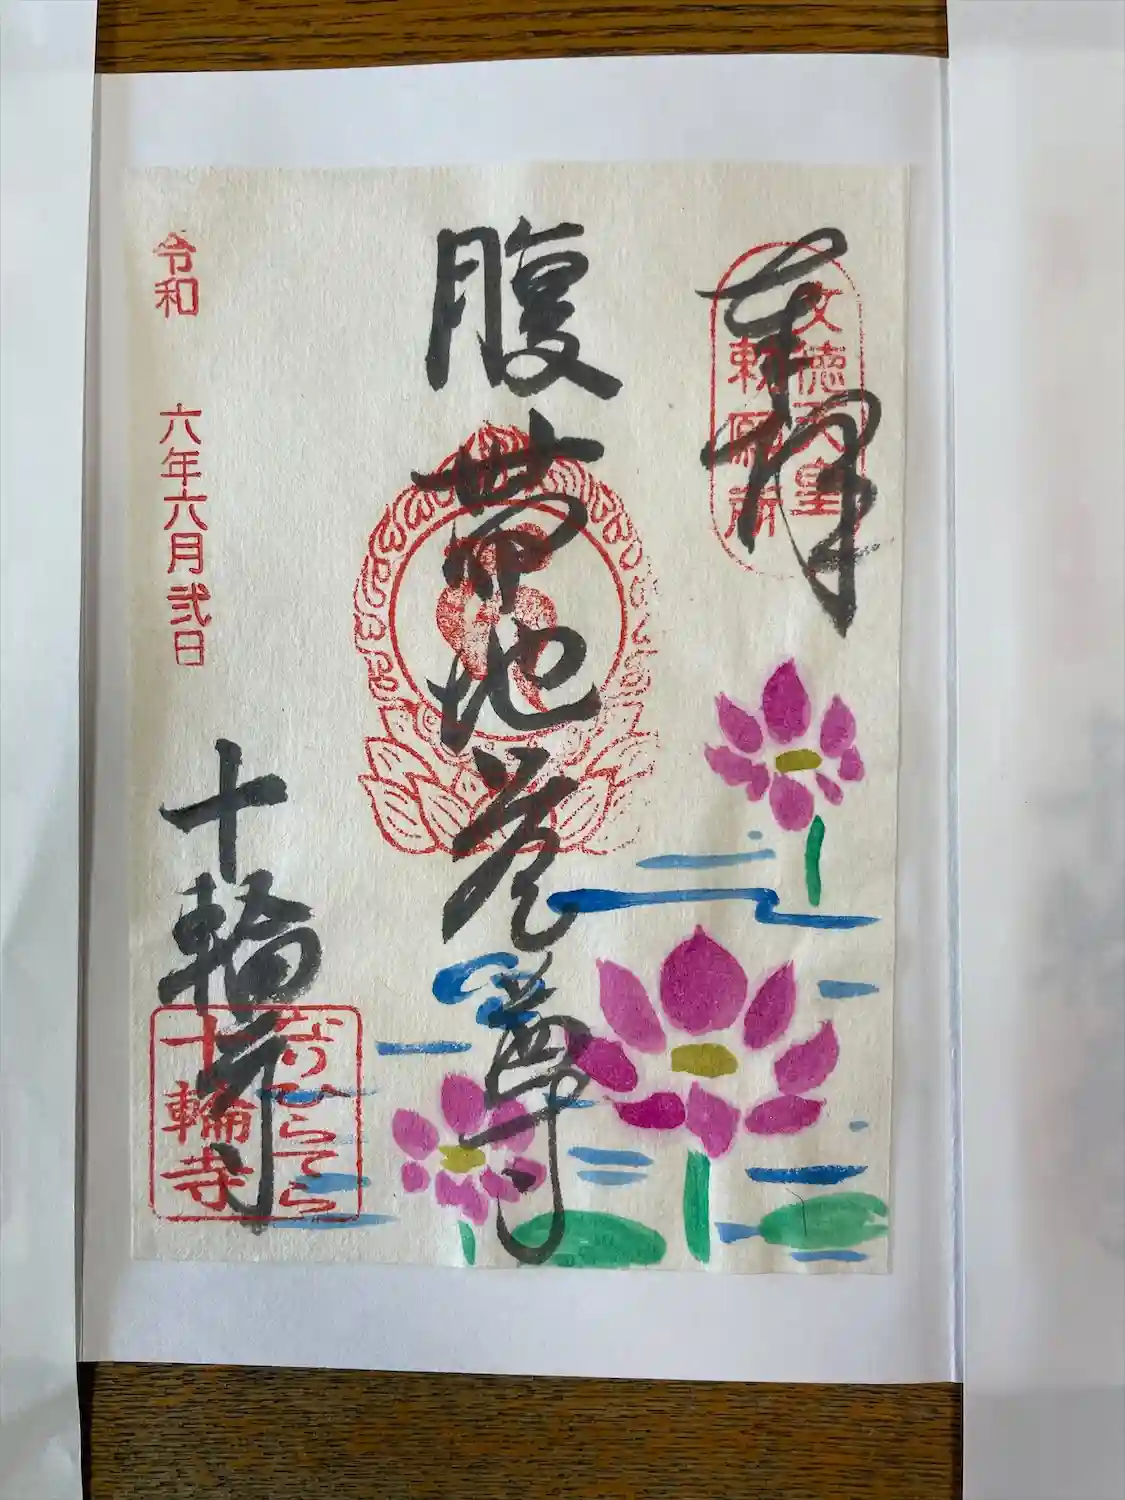 奉拝
文徳天皇
勅願所
腹帯地蔵尊
令和 六年六月弐日
十輪寺
なりひらてら
十輪寺